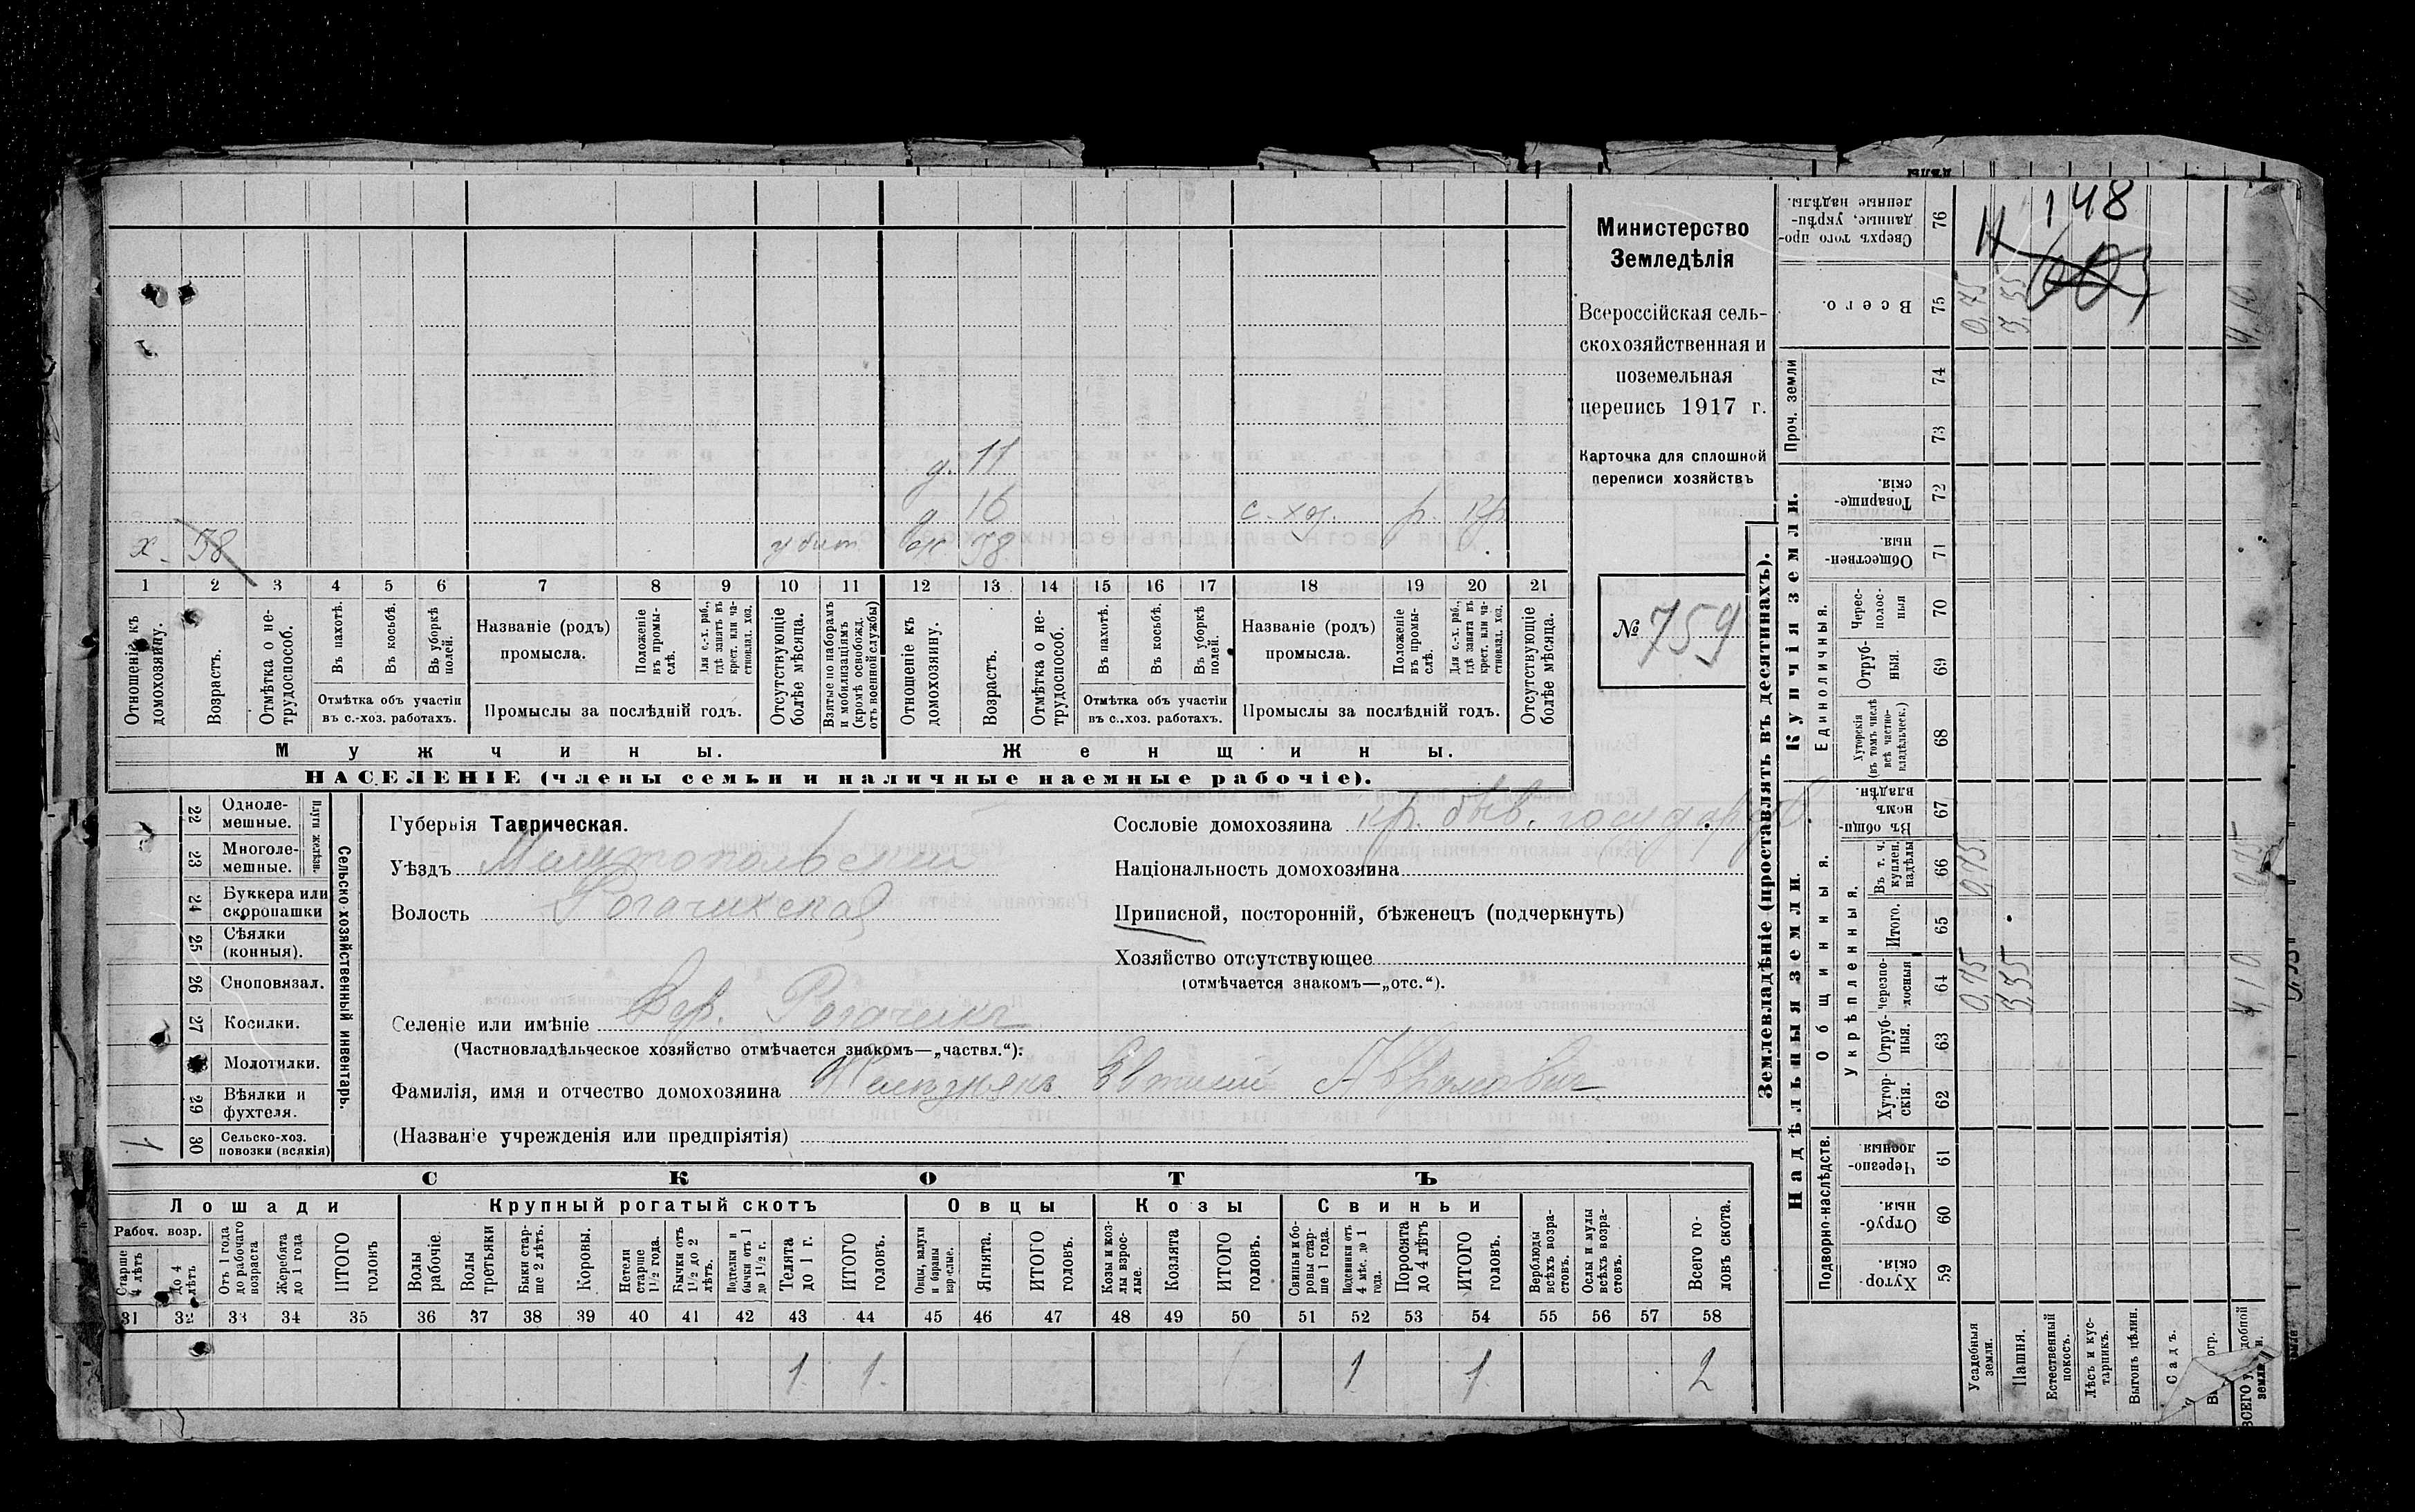 Министерство
Земледѣлія
Всероссійская сель-
скохозяйственная и
поземельная
перепись 1917 г.
Карточка для сплошной
переписи хозяйствъ
№ 759
148
д. 11
д 16 с.-хоз. р. кр.
х. 38 убит 38
1 2 3 4 5 6 7 8 9 10 11 12 13 14 15 16 17 18 19 20 21
Отношеніе къ домохозяину.
Возрастъ.
Отмѣтка о не-трудоспособ.
Въ пахотѣ.
Въ косьбѣ.
Въ уборкѣ полей.
Отмѣтка объ участіи въ с.-хоз. работахъ.
Названіе (родъ) промысла.
Положеніе въ промы-слѣ.
Для с.-х. раб., гдѣ занятъ въ крест. или ча-стновлад. хоз.
Промыслы за послѣдній годъ.
Отсутствующіе болѣе мѣсяца.
Взятые по наборамъ и мобилизаціямъ (кромѣ освобожд. отъ военной службы)
Отношеніе къ домохозяину.
Возрастъ.
Отмѣтка о не-трудоспособ.
Въ пахотѣ.
Въ косьбѣ.
Въ уборкѣ полей.
Отмѣтка объ участіи въ с.-хоз. работахъ.
Названіе (родъ) промысла.
Положеніе въ промы-слѣ.
Для с.-х. раб., гдѣ занята въ крест. или ча-стновлад. хоз.
Промыслы за послѣдній годъ.
Отсутствующіе болѣе мѣсяца.
Мужчины. Женщины.
НАСЕЛЕНІЕ (члены семьи и наличные наемные рабочіе).
Сельско хозяйственный инвентарь.
Плуги желѣзн.
22 Одноле-мешные.
23 Многоле-мешные.
24 Буккера или скоропашки
25 Сѣялки (конныя).
26 Сноповязал.
27 Косилки.
Молотилки.
29 Вѣялки и фухтеля.
30 Сельско-хоз. повозки (всякія) 1
Губернія Таврическая.
Уѣздъ Мелитопольский
Волость Рогачикская
Селеніе или имѣніе Вер. Рогачикъ
(Частновладѣльческое хозяйство отмѣчается знакомъ—„частвл.“):
Фамилія, имя и отчество домохозяина Железнякъ Евтихий Аврамович
(Названіе учрежденія или предпріятія)
Сословіе домохозяина кр. быв. государств.
Національность домохозяина
Приписной, посторонній, бѣженецъ (подчеркнуть)
Хозяйство отсутствующее
(отмѣчается знакомъ—„отс.“).
СКОТЪ
Лошади Крупный рогатый скотъ Овцы Козы Свиньи
Рабоч. возр.
Старше 4 лѣтъ
До 4 лѣтъ
Отъ 1 года до рабочаго возраста
Жеребята до 1 года
ИТОГО головъ
Волы рабочіе.
Волы третьяки
Быки стар-ше 2 лѣтъ.
Коровы.
Нетели старше 1 1/2 года.
Бычки отъ 1 1/2 до 2 лѣтъ.
Подтелки и бычки отъ 1 до 1 1/2 г.
Телята до 1 г.
ИТОГО головъ.
Овцы, валухи и бараны взрослые.
Ягнята.
ИТОГО головъ.
Козы и коз-лы взрос-лые.
Козлята
ИТОГО головъ.
Свиньи и бо-ровы стар-ше 1 года.
Подсвинки отъ 4 мѣс. до 1 года.
Поросята до 4 лѣтъ
ИТОГО головъ.
Верблюды всѣхъ возра-стовъ.
Ослы и мулы всѣхъ возра-стовъ.
Всего го-ловъ скота.
31 32 33 34 35 36 37 38 39 40 41 42 43 44 45 46 47 48 49 50 51 52 53 54 55 56 57 58
1 1 1 1 2
Землевладѣніе (проставлять въ десятинахъ).
Надѣльныя земли.
Купчія земли.
Проч. земли
Подворно-наслѣдств.
Общинныя.
Укрѣпленныя.
Единоличныя.
Сверхъ того про-данные, укрѣп-ленные надѣлы. 76
Всего. 75 0,75 3,35 4,10
74
73
Товарище-скія. 72
Обществен-ныя. 71
Черес-полос-ныя 70
Отруб-ныя. 69
Хуторскія (въ томъ числѣ всѣ частно-владѣльческ.) 68
Въ общи-номъ владѣн. 67
Въ т. ч. куплен. надѣлы 66 0,75 0,75
Итого. 65
Черезпо-лосныя 64 0,75 3,35 4,10
Отруб-ныя. 63
Хутор-скія. 62
Черезпо-лосныя 61
Отруб-ныя. 60
Хутор-скія. 59
Усадебныя земли.
Пашня.
Естественный покосъ.
Лѣсъ и кус-тарникъ.
Выгонъ цѣлин.
Садъ.